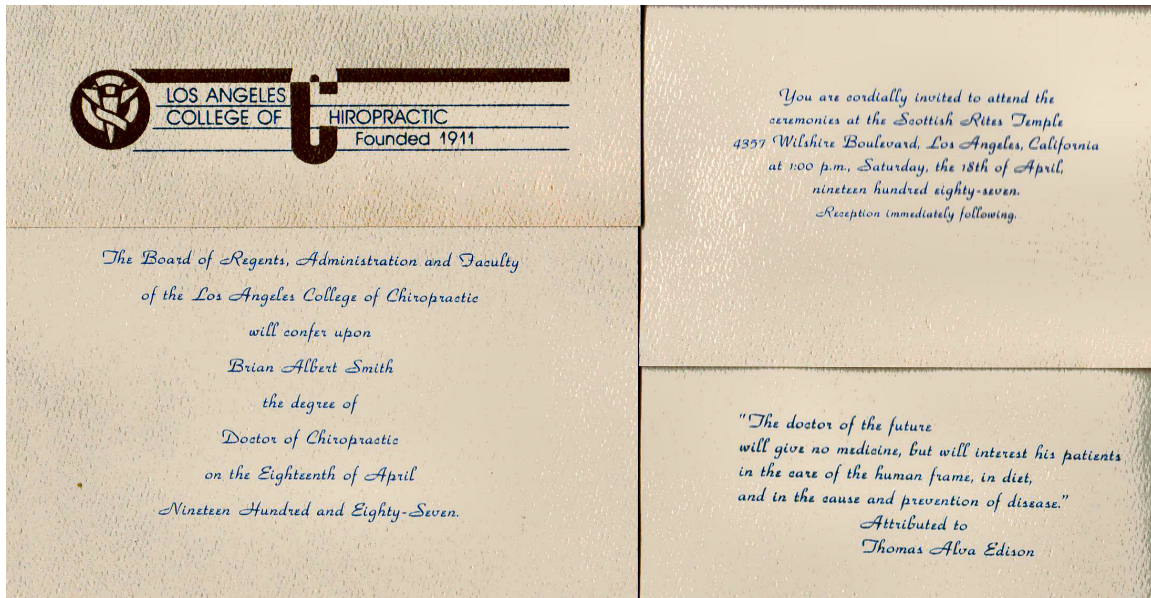 LOS ANGELES
COLLEGE OF CHIROPRACTIC
Founded 1911
The Board of Regents, Administration and Faculty
of the Los Angeles College of Chiropractic
will confer upon
Brian Albert Smith
the degree of
Doctor of Chiropractic
on the Eighteenth of April
Nineteen Hundred and Eighty-Seven.
You are cordially invited to attend the
ceremonies at the Scottish Rites Temple
4357 Wilshire Boulevard, Los Angeles, California
at 1:00 p.m., Saturday, the 18th of April,
nineteen hundred eighty-seven.
Reception immediately following.
"The doctor of the future
will give no medicine, but will interest his patients
in the care of the human frame, in diet,
and in the cause and prevention of disease."
Attributed to
Thomas Alva Edison